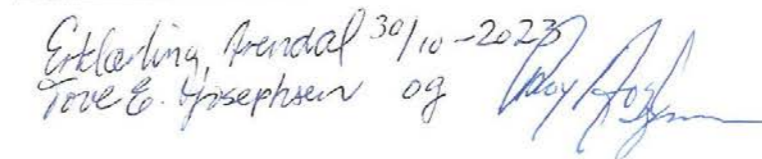 Erklæring, Arendal 30/10-2023
Tove E. Josephsen og Roy